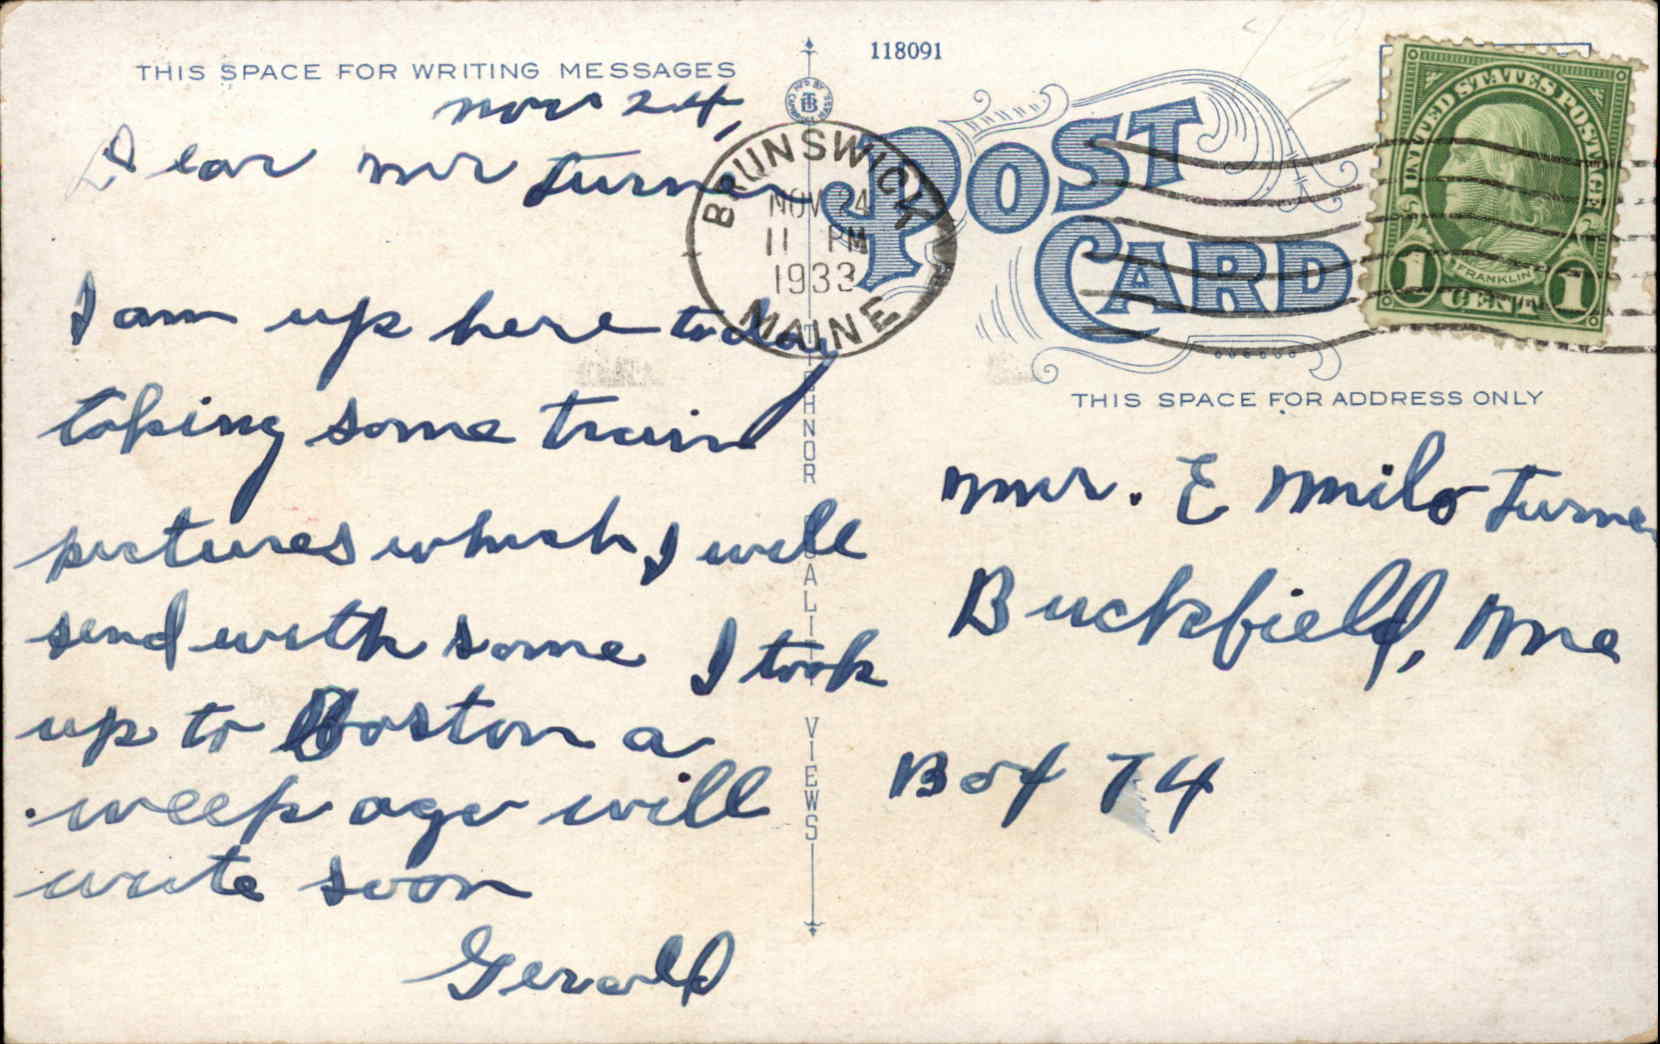 THIS SPACE FOR WRITING MESSAGES
Nov 24,
Dear Mr Turner
I am up here today
taking some train
pictures which I will
send with some I took
up to Boston a
week ago will
write soon
Gerald
118091
BRUNSWICK
NOV 24
11 PM
1933
MAINE
POST
CARD
UNITED STATES POSTAGE
FRANKLIN
1 CENT 1
THIS SPACE FOR ADDRESS ONLY
Mr. E Milo Turner
Buckfield, Me
Box 74
TICHNOR QUALITY VIEWS